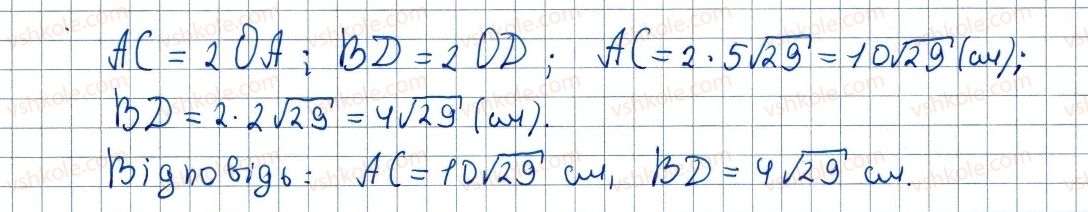 AC = 2 OA; BD = 2 OD; AC = 2 · 5√29 = 10√29 (см);
BD = 2 · 2√29 = 4√29 (см).
Відповідь: AC = 10√29 см, BD = 4√29 см.